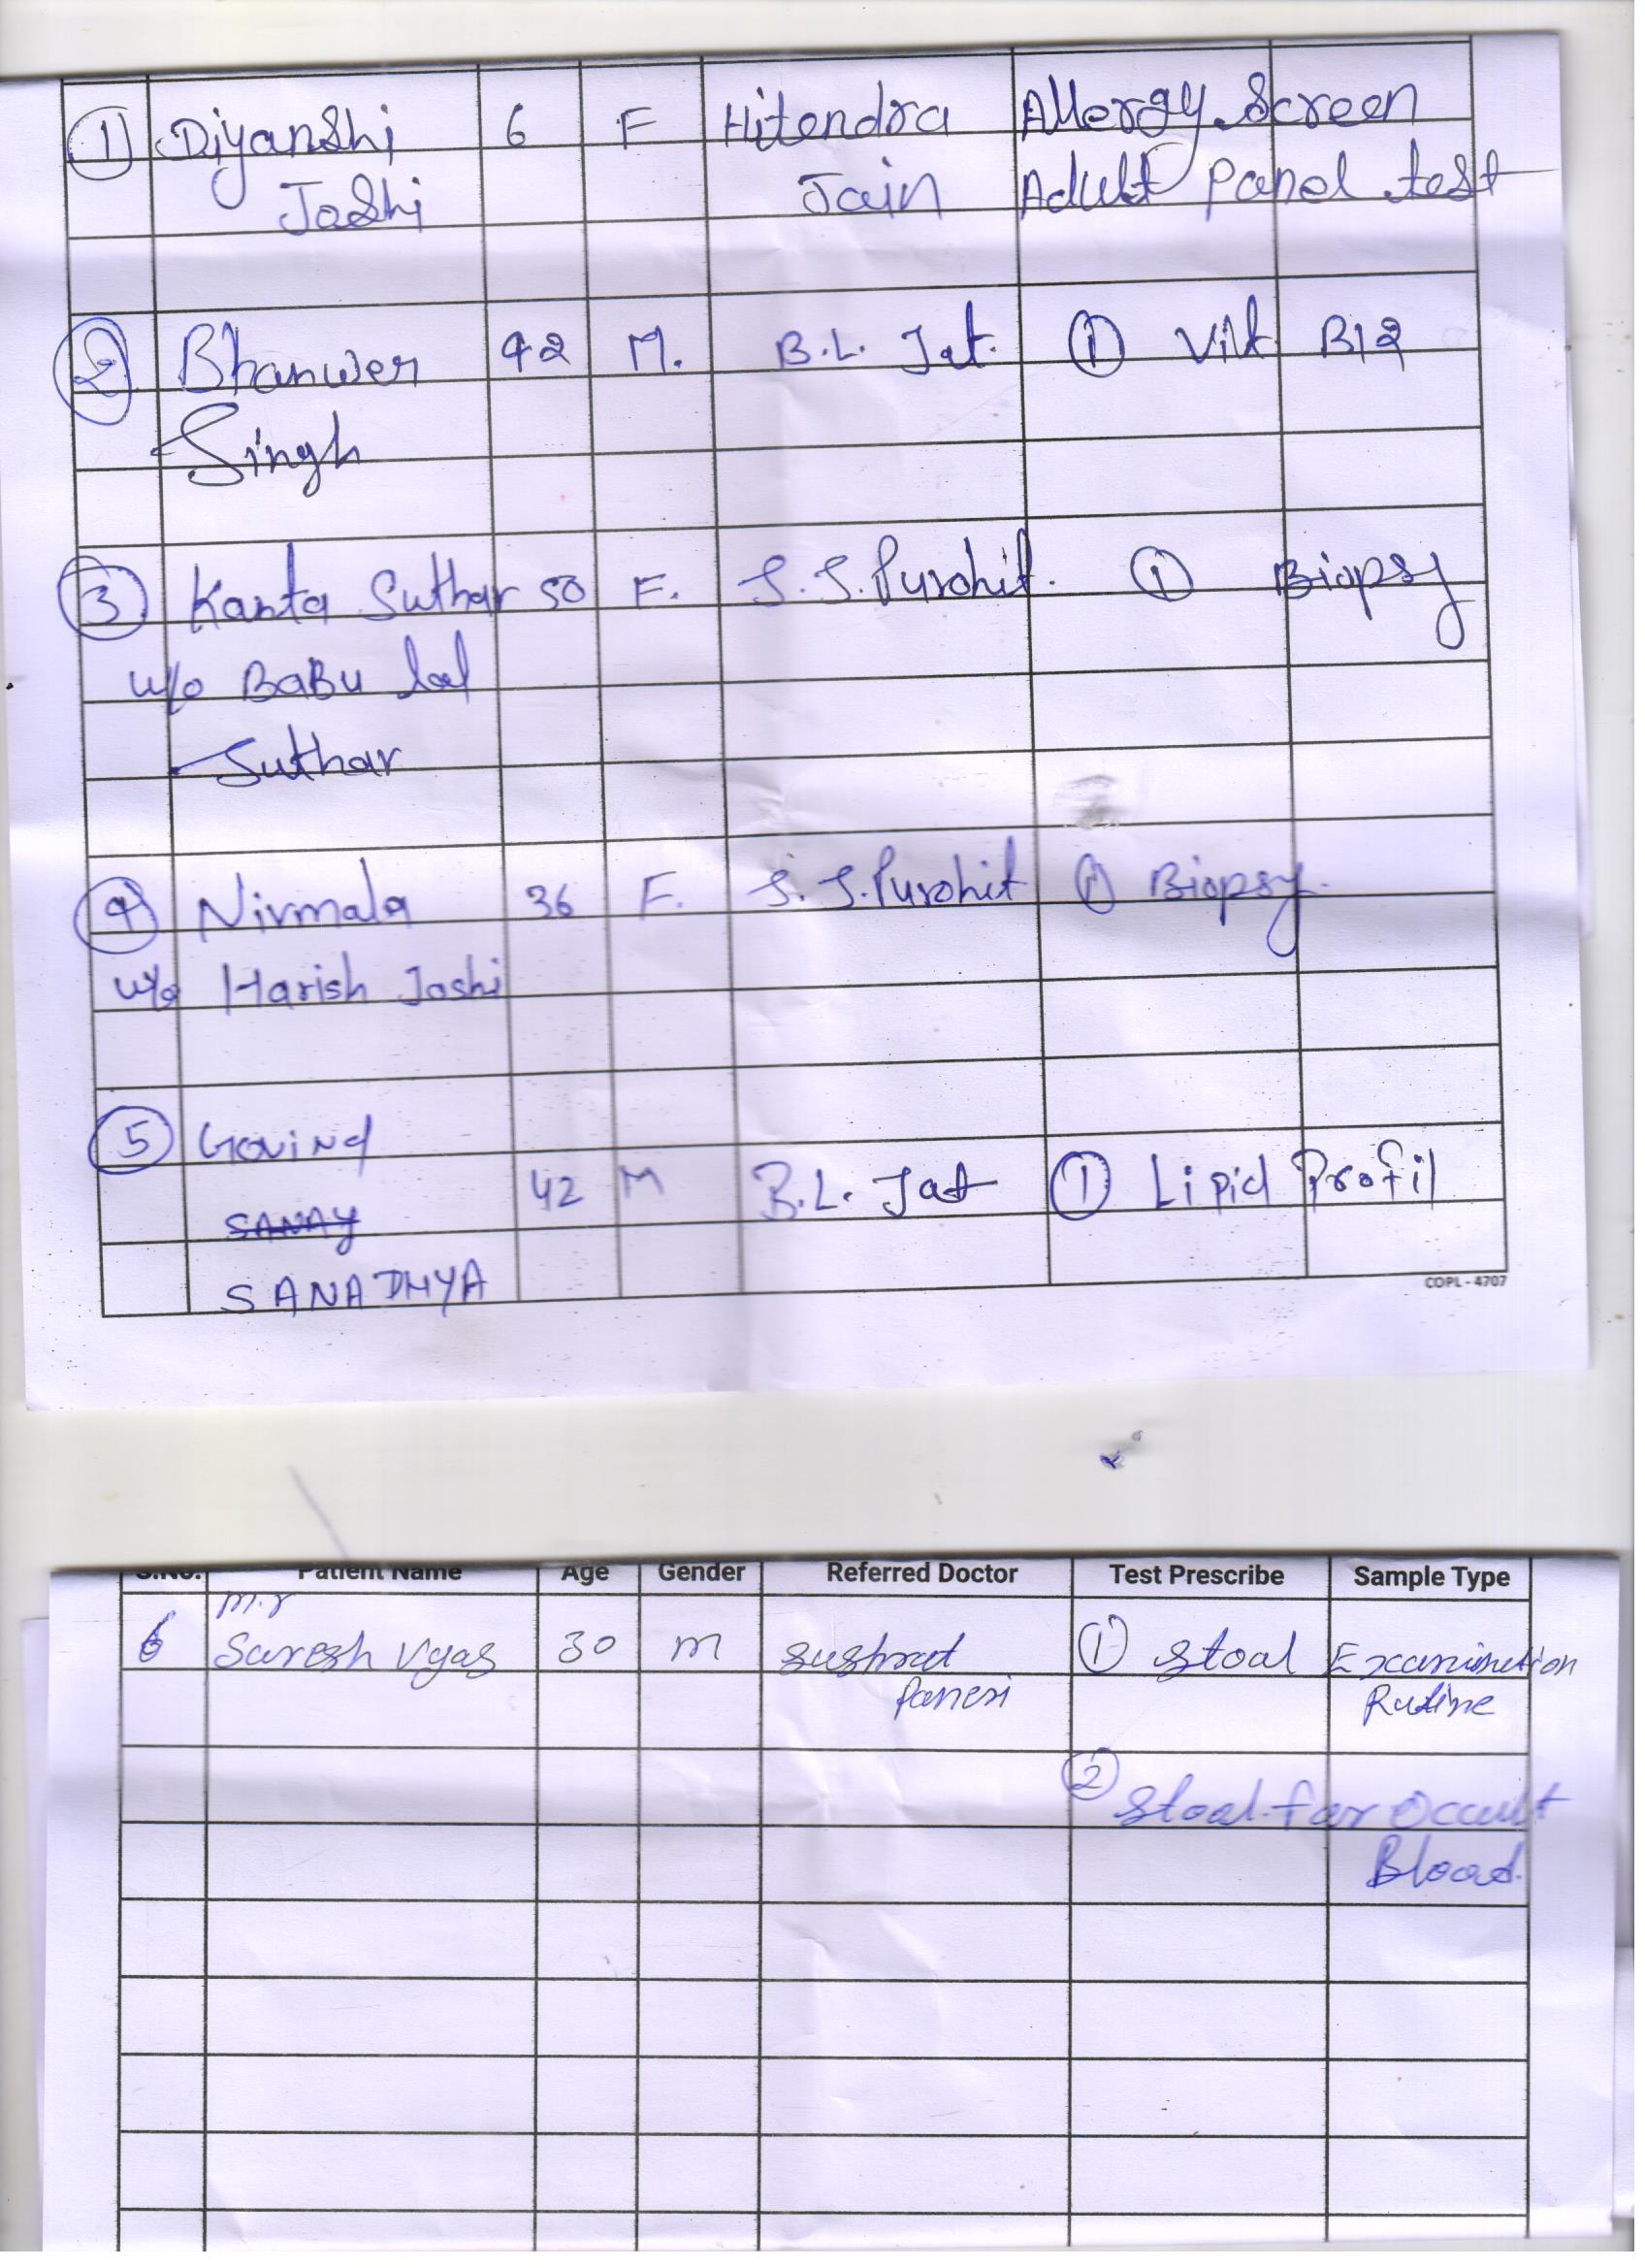 1 Diyanshi 6 F Hitendra Allergy Screen
Joshi Jain Adult Panel test
2 Bhanwer 42 M. B.L. Jat. 1 Vit B12
Singh
3 Kanta Suthar 50 F. S.S. Purohit. 1 Biopsy
w/o BaBu lal
Suthar
4 Nirmala 36 F. S.S. Purohit 1 Biopsy.
w/o Harish Joshi
5 Govind
42 M B.L. Jat 1 Lipid Profil
SANAY
SANADHYA
COPL - 4707
S.No. Patient Name Age Gender Referred Doctor Test Prescribe Sample Type
M.r
6 Suresh Vyas 30 M Sushrat 1 Stoal Examination
Rutine
2 Stoal for Occult
Blood.